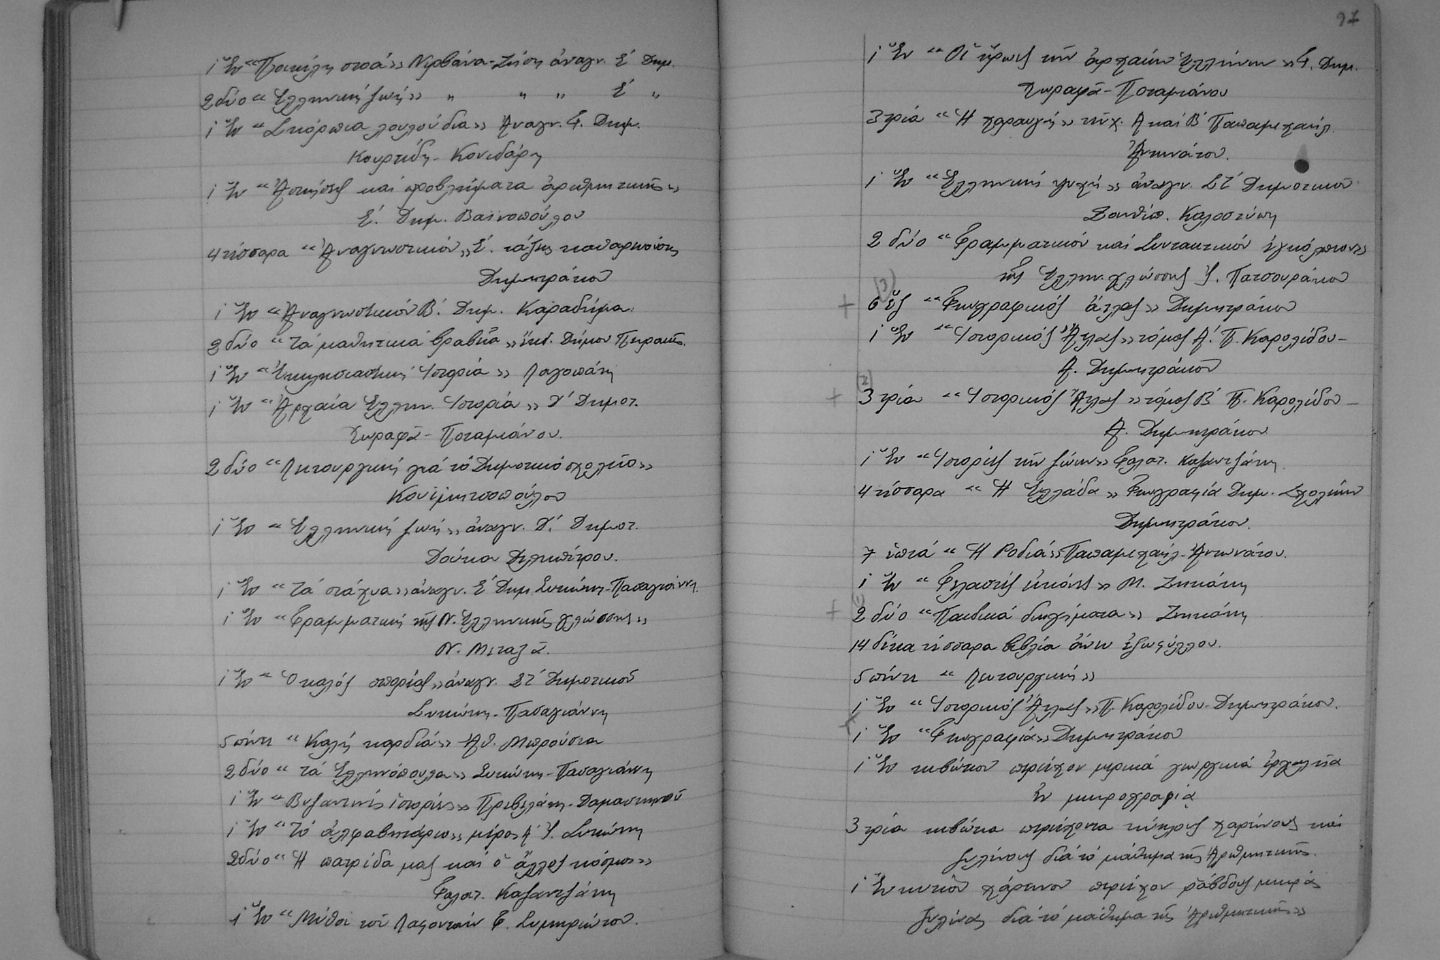 1 ἕν "Ποικίλη στοά" Νιρβάνα-Ζήση ἀναγν. Ε΄ Δημ.
2 δύο "Ἑλληνική ζωή" " " " Ε΄ "
1 ἕν "Σκόρπια λουλούδια" Ἀναγν. Δημ.
Κουρτίδη - Κονιδάρη
1 ἕν "Ἀσκήσεις καί προβλήματα ἀριθμητικῆς"
Ε΄. Δημ. Βαϊνοπούλου
4 τέσσαρα "Ἀναγνωστικόν" Ε΄. τάξεως
Δημητράκου
1 ἕν "Ἀναγνωστικόν Β΄. Δημ. Καραδήμα.
2 δύο "Τά μαθητικά βραβεῖα" ἐκδ. Δήμου Πειραιῶς.
1 ἕν "Ἐκκλησιαστική Ἱστορία" Λαγοπάτη
1 ἕν "Ἀρχαία Ἑλλην. Ἱστορία" Δ΄ Δημοτ.
Χωραφᾶ - Ποταμιάνου.
2 δύο "Λειτουργική γιά τό Δημοτικό σχολεῖο"
1 ἕν "Ἑλληνική ζωή" ἀναγν. Δ΄. Δημοτ.
Δούκα Δεληπέτρου.
1 ἕν "Τά στάχυα" ἀναγν. Ε΄ Δημ. Συκώκη - Παπαγιάννη
1 ἕν "Γραμματική τῆς Ν. Ἑλληνικῆς γλώσσης"
Ν. Μεταξᾶ.
1 ἕν "Ὁ καλός σπορέας" ἀναγν. ΣΤ΄ Δημοτικοῦ
Συκώκη - Παπαγιάννη
5 πέντε "Καλή καρδιά" Ἀθ. Μπρούσια
2 δύο "τά Ἑλληνόπουλα" Συκώκη - Παπαγιάννη
1 ἕν "Βυζαντινές ἱστορίες" Πρεβελάκη - Δαμασκηνοῦ
1 ἕν "Τό ἀλφαβητάριο" μέρος Α΄ Ι. Συκώκη
2 δύο "Ἡ πατρίδα μας καί ὁ ἄλλος κόσμος"
Γαλατ. Καζαντζάκη
1 ἕν "Μῦθοι τοῦ Λαφονταίν Γ. Συμηριώτου.
97
1 ἕν "Οἱ ἥρωες τῶν ἀρχαίων Ἑλλήνων" Γ. Δημ.
Χωραφᾶ - Ποταμιάνου
3 τρία "Ἡ χαραυγή" τεῦχ. Α καί Β΄ Παπαμιχαήλ
Ἀντωνάτου.
1 ἕν "Ἑλληνική ψυχή" ἀναγν. ΣΤ΄ Δημοτικοῦ
Ξανθίπ. Καλοστύπη
2 δύο "Γραμματικόν καί Συντακτικόν ἐγκόλπιον"
τῆς Ἑλλην. γλώσσης Ι. Πατσουράκου
(3)
+ 6 ἕξ "Γεωγραφικός ἄτλας" Δημητράκου
1 ἕν "Ἱστορικός Ἄτλας" τόμος Α΄. Π. Καρολίδου -
Δ. Δημητράκου
(2)
+ 3 τρία "Ἱστορικός Ἄτλας" τόμος Β΄ Π. Καρολίδου -
Δ. Δημητράκου
1 ἕν "Ἱστορίες τῶν ζώων" Γαλατ. Καζαντζάκη.
4 τέσσαρα "Ἡ Ἑλλάδα" Γεωγραφία Δημ. Σχολείων
Δημητράκου.
7 ἑπτά "Ἡ Ροδιά" Παπαμιχαήλ - Ἀντωνάτου.
1 ἕν "Γελαστές εἰκόνες" Μ. Ζηκάκη
(1)
+ 2 δύο "Παιδικά διηγήματα" Ζηκάκη
14 δέκα τέσσαρα βιβλία ἄνευ ἐξωφύλλου.
5 πέντε "Λειτουργική"
1 ἕν "Ἱστορικός Ἄτλας" Π. Καρολίδου - Δημητράκου.
+ 1 ἕν "Γεωγραφία" Δημητράκου
1 ἕν κιβώτιον περιέχον μερικά γεωργικά ἐργαλεῖα
ἐν μικρογραφίᾳ
3 τρία κιβώτια περιέχοντα κύκλους χαρτίνους καί
ξυλίνους διά τό μάθημα τῆς Ἀριθμητικῆς.
1 ἕν κυτίον χάρτινον περιέχον ράβδους μικράς
ξυλίνας διά τό μάθημα τῆς Ἀριθμητικῆς"